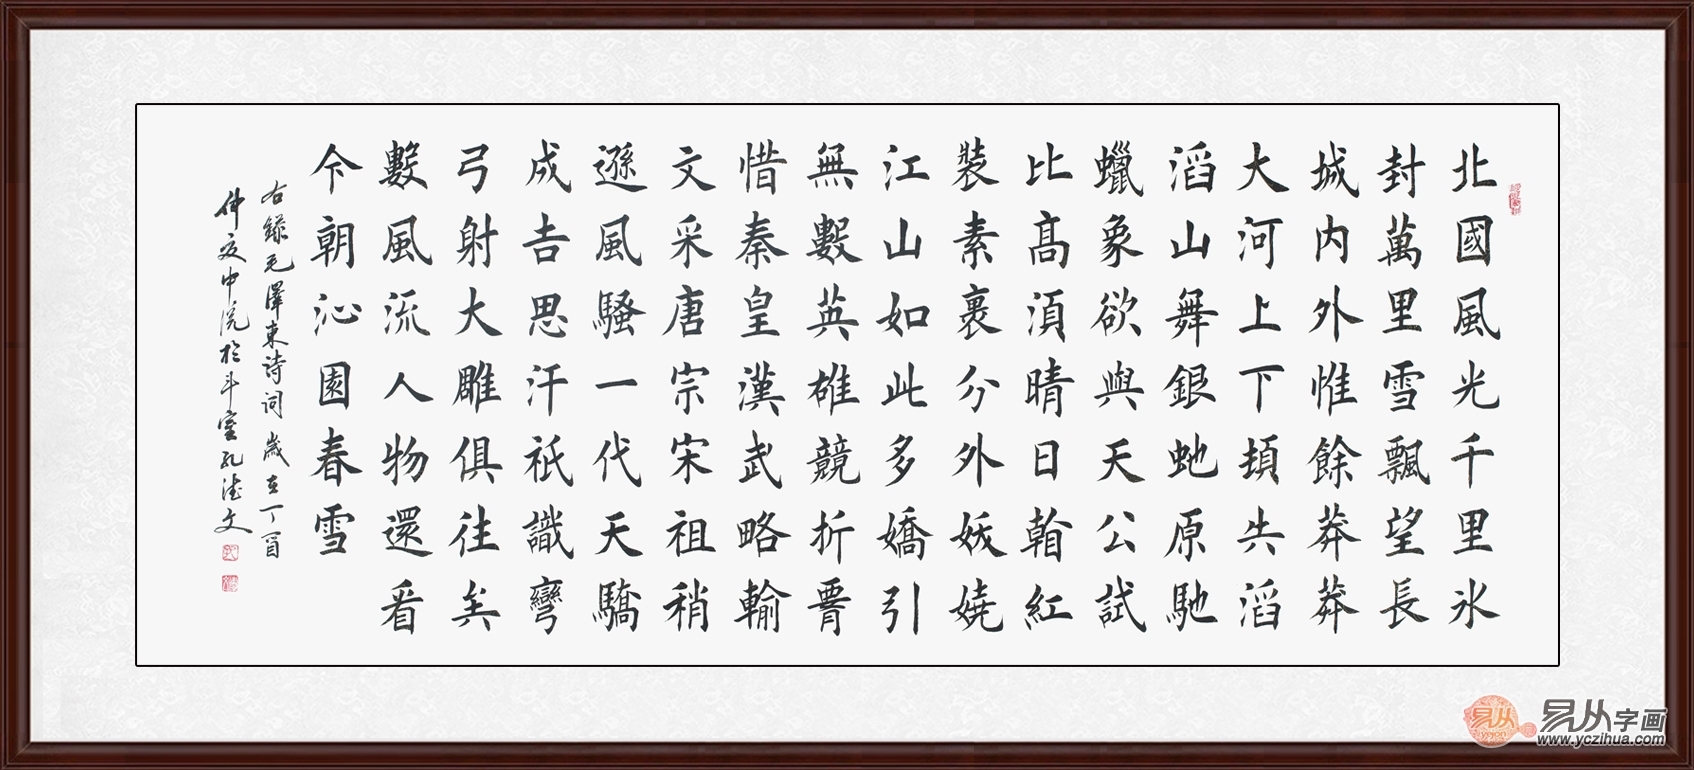 北國風光千里氷
封萬里雪飄望長
城內外惟餘莽莽
大河上下頓失滔
滔山舞銀蛇原馳
蠟象欲與天公試
比高須晴日看紅
裝素裹分外妖嬈
江山如此多嬌引
無數英雄競折腰
惜秦皇漢武略輸
文采唐宗宋祖稍
遜風騷一代天驕
成吉思汗祇識彎
弓射大雕俱往矣
數風流人物還看
今朝沁園春雪
右錄毛澤東詩詞歲在丁酉
仲夏中浣於斗室孔德文
易从
易从字画
www.yczihua.com